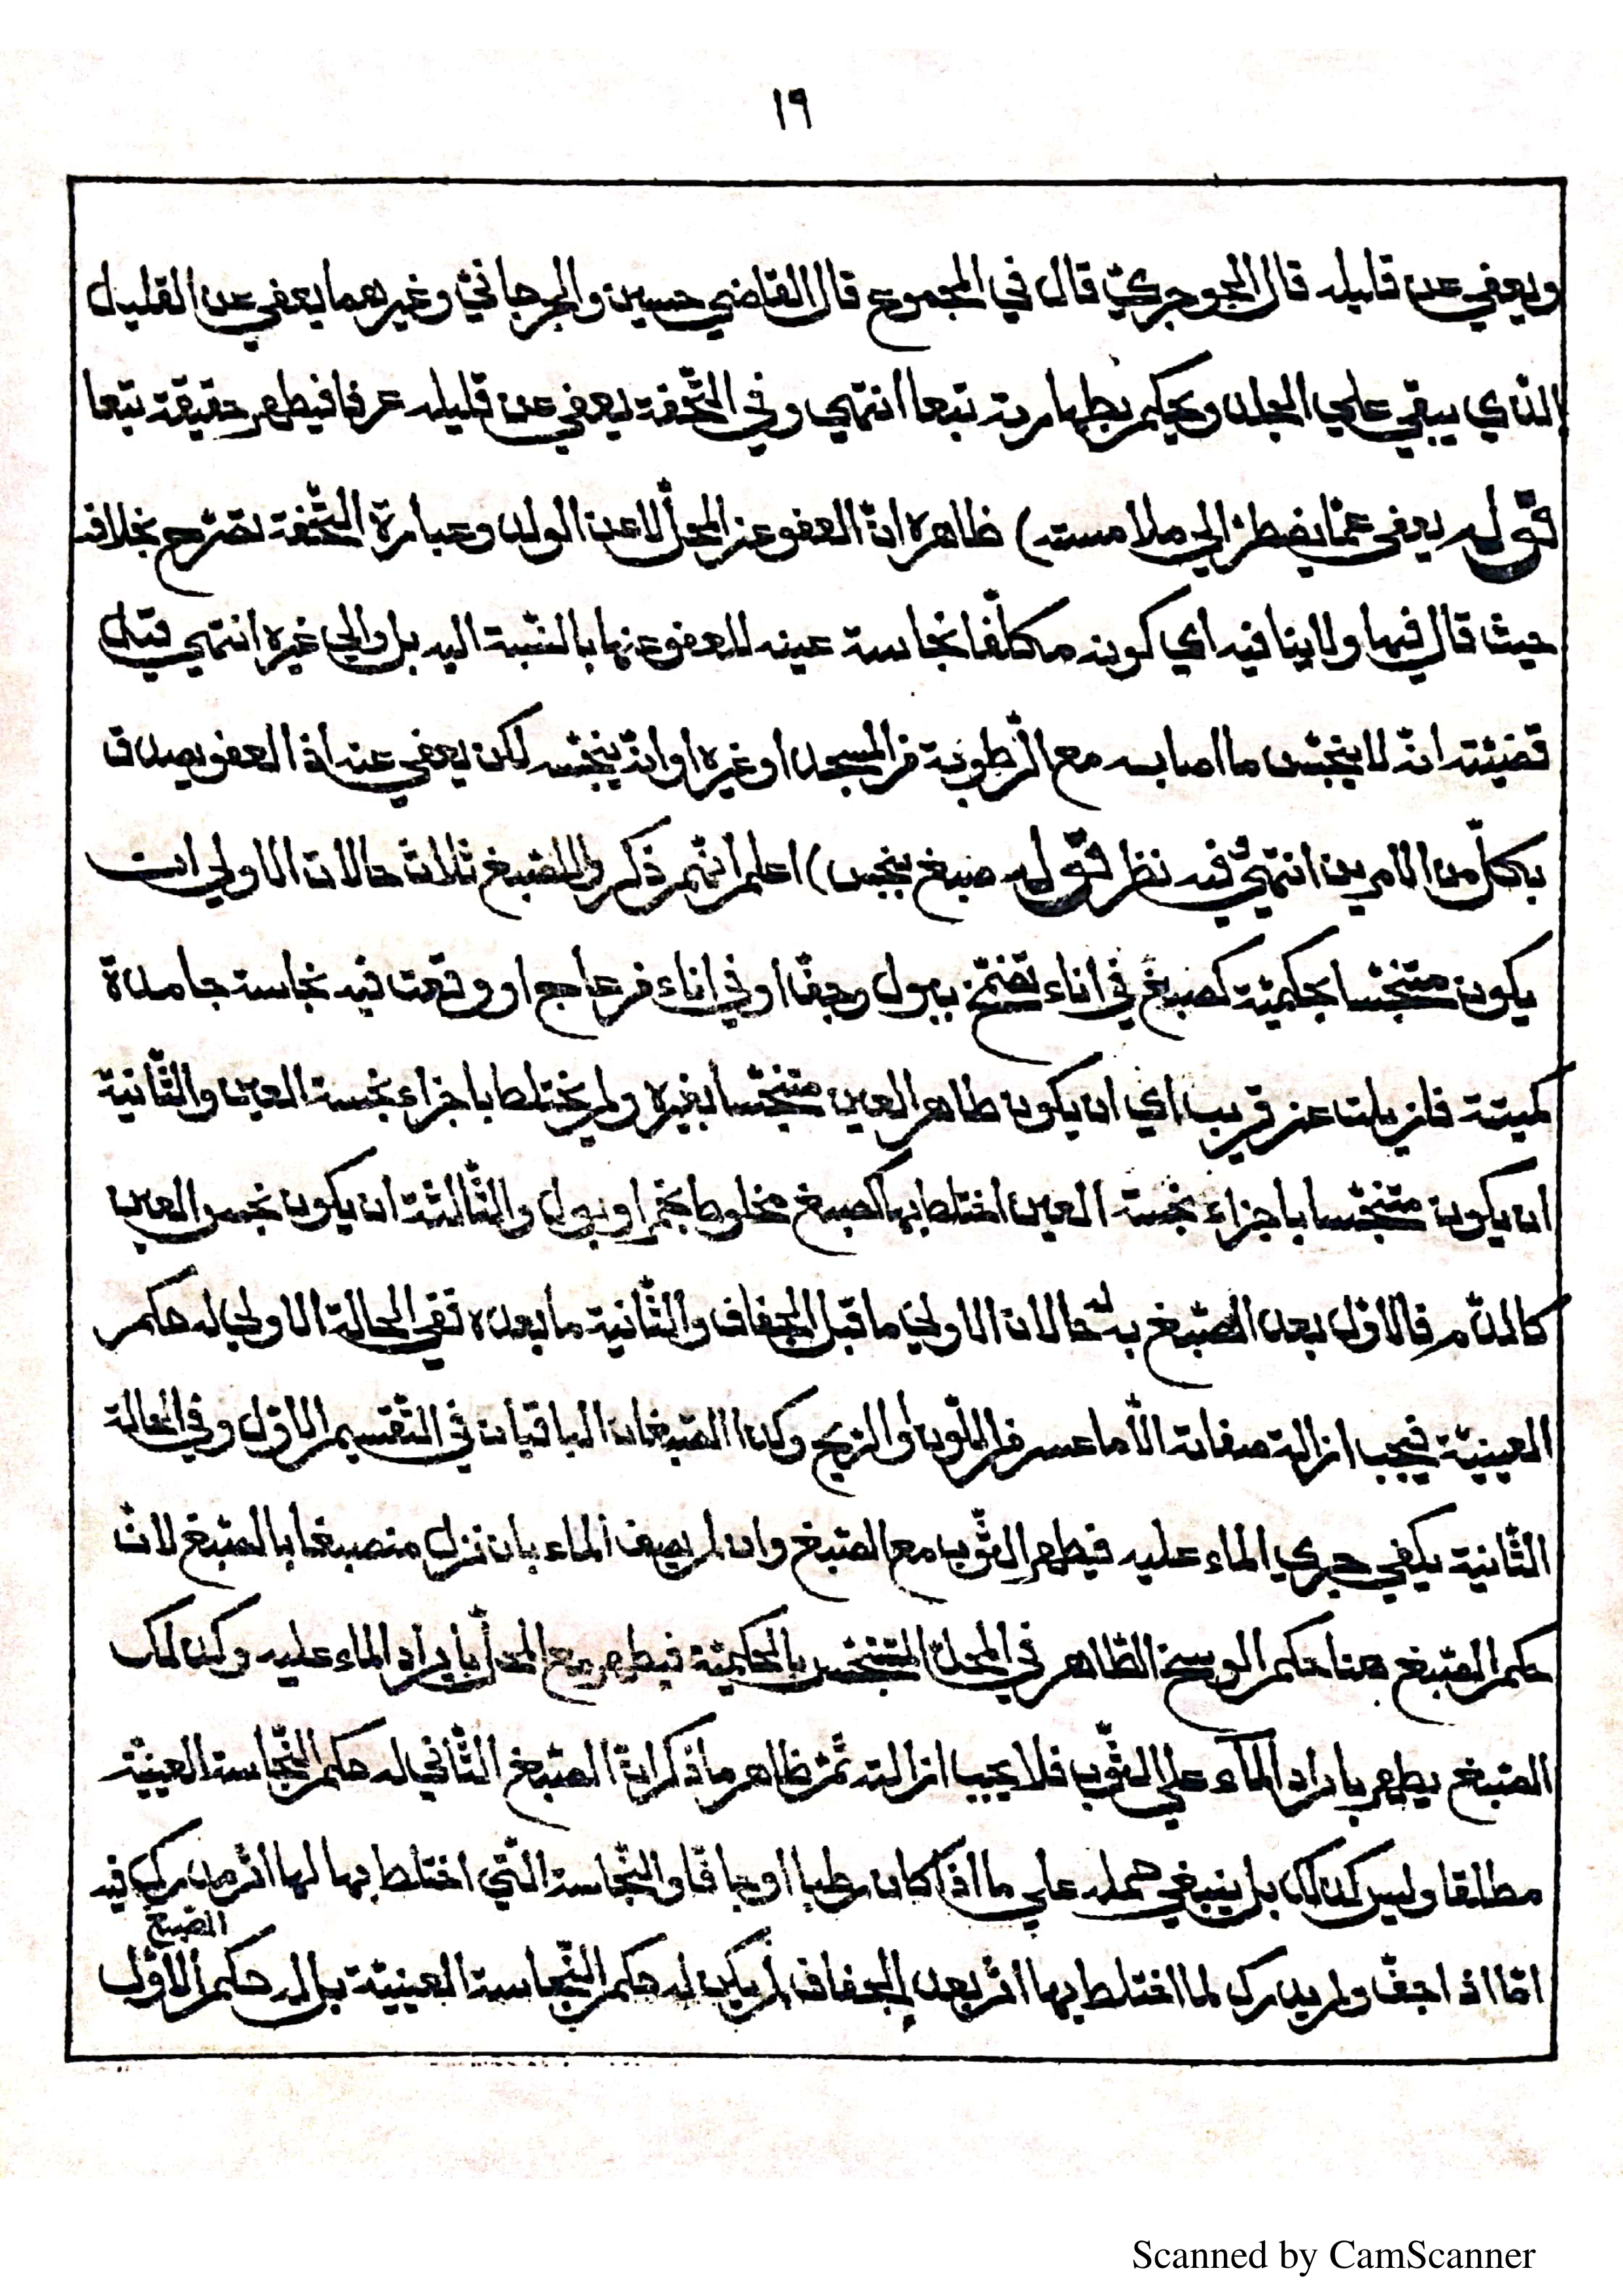 ١٩
ويعفي عن قليله قال الجوجريّ قال في المجموع قال القاضي حسين والجرجانيّ وغيرهما يعفي عن القليل
الذّي يبقي علي الجلد ويحكم بطهارته تبعا انتهي وفي التّحفة يعفي عن قليله عرفا فيطهر حقيقة تبعا
قوله يعفى عمّا يضطرّ الي ملامسته) ظاهره انّ العفو عن المحلّ لا عن الولد وعبارة التّحفة تصّرح بخلافه
حيث قال فيها ولا ينافيه اي كونه مكلّفا نجاسة عينه للعفو عنها بالنّسبة اليه بل والي غيره انتهي قيل
قضيّته انّه لا ينجّس ما اصابه مع الرّطوبة من المسجد او غيره او انّه ينجّسه لكن يعفي عنه اذ العفو يصدق
بكلّ من الامرين انتهي فيه نظر قوله صبغ ينجس) اعلم انّهم ذكروا للصّبغ ثلاث حالات الاولي ان
يكون متنجّسا بحكميّة كصبغ في اناء تضمّخ ببول وجفّ او في اناء من عاج او وقعت فيه نجاسة جامدة
كميتة فازيلت عن قريب اي ان يكون طاهر العين متنجّسا بغيره ولم يختلط باجزاء نجسة العين والثّانية
ان يكون متنجّسا باجزاء نجسة العين اختلط بها كصبغ مخلوط بخمر او بول والثّالثة ان يكون نجس العين
كالدّم فالاوّل بعد الصّبغ به حالان الاولي ما قبل الجفاف والثّانية ما بعده ففي الحالة الاولي له حكم
العينيّة فيجب ازالة صفاته الّا ما عسر من اللّون او الرّيح وكذا الصّبغان الباقيان في التّقسيم الاوّل وفي الحالة
الثّانية يكفي جري الماء عليه فيطهر الثّوب مع الصّبغ وان لم يصف الماء بان نزل منصبغا بالصّبغ لانّ
حكم الصّبغ هنا حكم الوسخ الطّاهر في المحلّ المتنجّس بالحكميّة فيطهر مع المحلّ بايراد الماء عليه وكذلك
الصّبغ يطهر بايراد الماء علي الثّوب فلا يجب ازالته ثمّ ظاهر ما ذكر انّ الصّبغ الثّاني له حكم النّجاسة العينيّة
مطلقا وليس كذلك بل ينبغي حمله علي ما اذا كان رطبا او جافا والنّجاسة الّتي اختلط بها لها اثر مدرك فيه
الصّبغ
امّا اذا جفّ ولم يدرك لما اختلط بها اثر بعد الجفاف لم يكن له حكم النّجاسة العينيّة بل له حكم الاوّل
Scanned by CamScanner